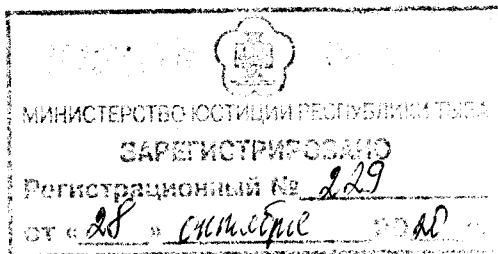 МИНИСТЕРСТВО ЮСТИЦИИ РЕСПУБЛИКИ ТЫВА
ЗАРЕГИСТРИРОВАНО
Регистрационный № 229
от «28» сентября 2020 г.